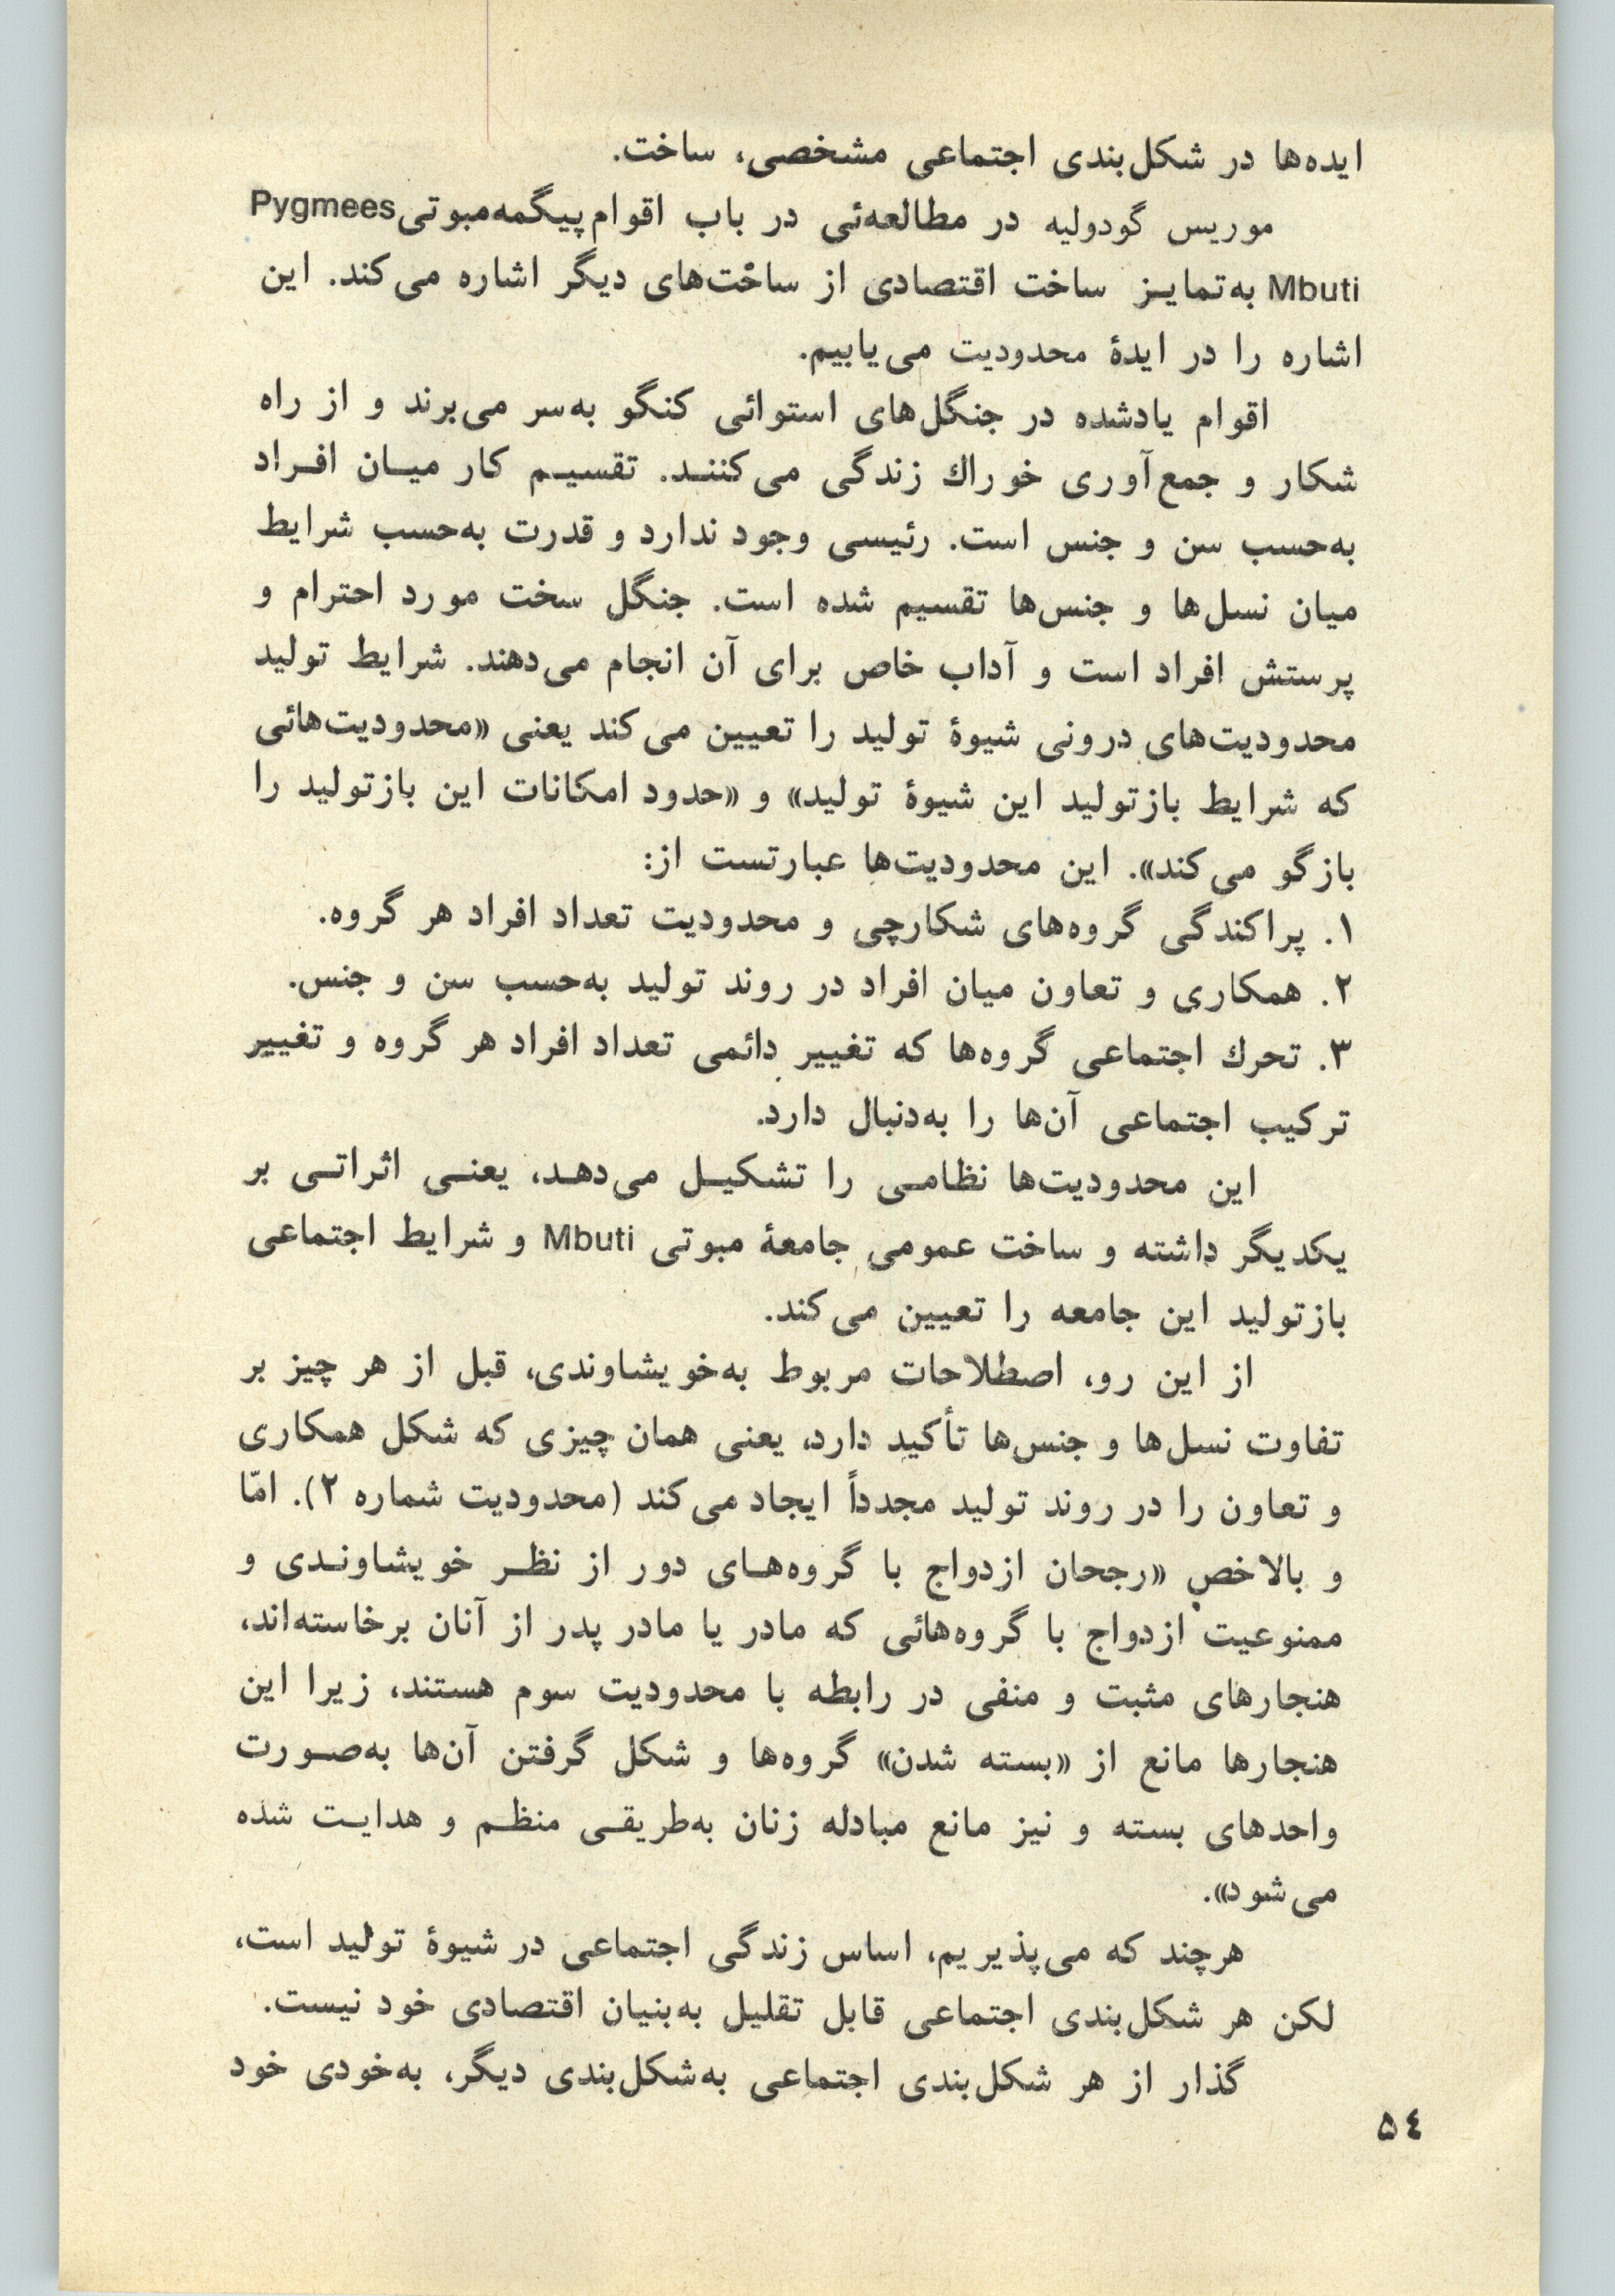 ایده‌ها در شکل‌بندی اجتماعی مشخصی، ساخت.
موریس گودولیه در مطالعه‌ئی در باب اقوام پیگمه‌مبوتی Pygmees
Mbuti به‌تمایـز ساخت اقتصادی از ساخت‌های دیگر اشاره می‌کند. این
اشاره را در ایدهٔ محدودیت می‌یابیم.
اقوام یادشده در جنگل‌های استوائی کنگو به‌سر می‌برند و از راه
شکار و جمع‌آوری خوراك زندگی می‌کننـد. تقسیـم کار میـان افـراد
به‌حسب سن و جنس است. رئیسی وجود ندارد و قدرت به‌حسب شرایط
میان نسل‌ها و جنس‌ها تقسیم شده است. جنگل سخت مورد احترام و
پرستش افراد است و آداب خاص برای آن انجام می‌دهند. شرایط تولید
محدودیت‌های درونی شیوهٔ تولید را تعیین می‌کند یعنی «محدودیت‌هائی
که شرایط بازتولید این شیوهٔ تولید» و «حدود امکانات این بازتولید را
بازگو می‌کند». این محدودیت‌ها عبارتست از:
۱. پراکندگی گروه‌های شکارچی و محدودیت تعداد افراد هر گروه.
۲. همکاری و تعاون میان افراد در روند تولید به‌حسب سن و جنس.
۳. تحرك اجتماعی گروه‌ها که تغییر دائمی تعداد افراد هر گروه و تغییر
ترکیب اجتماعی آن‌ها را به‌دنبال دارد.
این محدودیت‌ها نظامـی را تشکیـل می‌دهـد، یعنـی اثراتـی بر
یکدیگر داشته و ساخت عمومی جامعهٔ مبوتی Mbuti و شرایط اجتماعی
بازتولید این جامعه را تعیین می‌کند.
از این رو، اصطلاحات مربوط به‌خویشاوندی، قبل از هر چیز بر
تفاوت نسل‌ها و جنس‌ها تأکید دارد، یعنی همان چیزی که شکل همکاری
و تعاون را در روند تولید مجدداً ایجاد می‌کند (محدودیت شماره ۲). امّا
و بالاخص «رجحان ازدواج با گروه‌هـای دور از نظـر خویشاونـدی و
ممنوعیت ازدواج با گروه‌هائی که مادر یا مادر پدر از آنان برخاسته‌اند،
هنجارهای مثبت و منفی در رابطه با محدودیت سوم هستند، زیرا این
هنجارها مانع از «بسته شدن» گروه‌ها و شکل گرفتن آن‌ها به‌صـورت
واحدهای بسته و نیز مانع مبادله زنان به‌طریقـی منظـم و هدایـت شده
می‌شود».
هرچند که می‌پذیریم، اساس زندگی اجتماعی در شیوهٔ تولید است،
لکن هر شکل‌بندی اجتماعی قابل تقلیل به‌بنیان اقتصادی خود نیست.
گذار از هر شکل‌بندی اجتماعی به‌شکل‌بندی دیگر، به‌خودی خود
۵٤